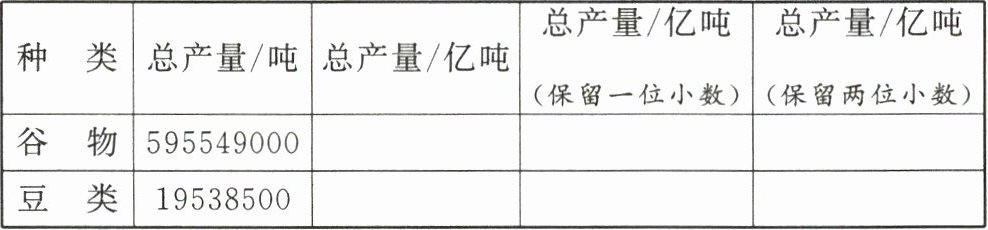 种 类 总产量/吨 总产量/亿吨 总产量/亿吨 总产量/亿吨
(保留一位小数) (保留两位小数)
谷 物 595549000
豆 类 19538500